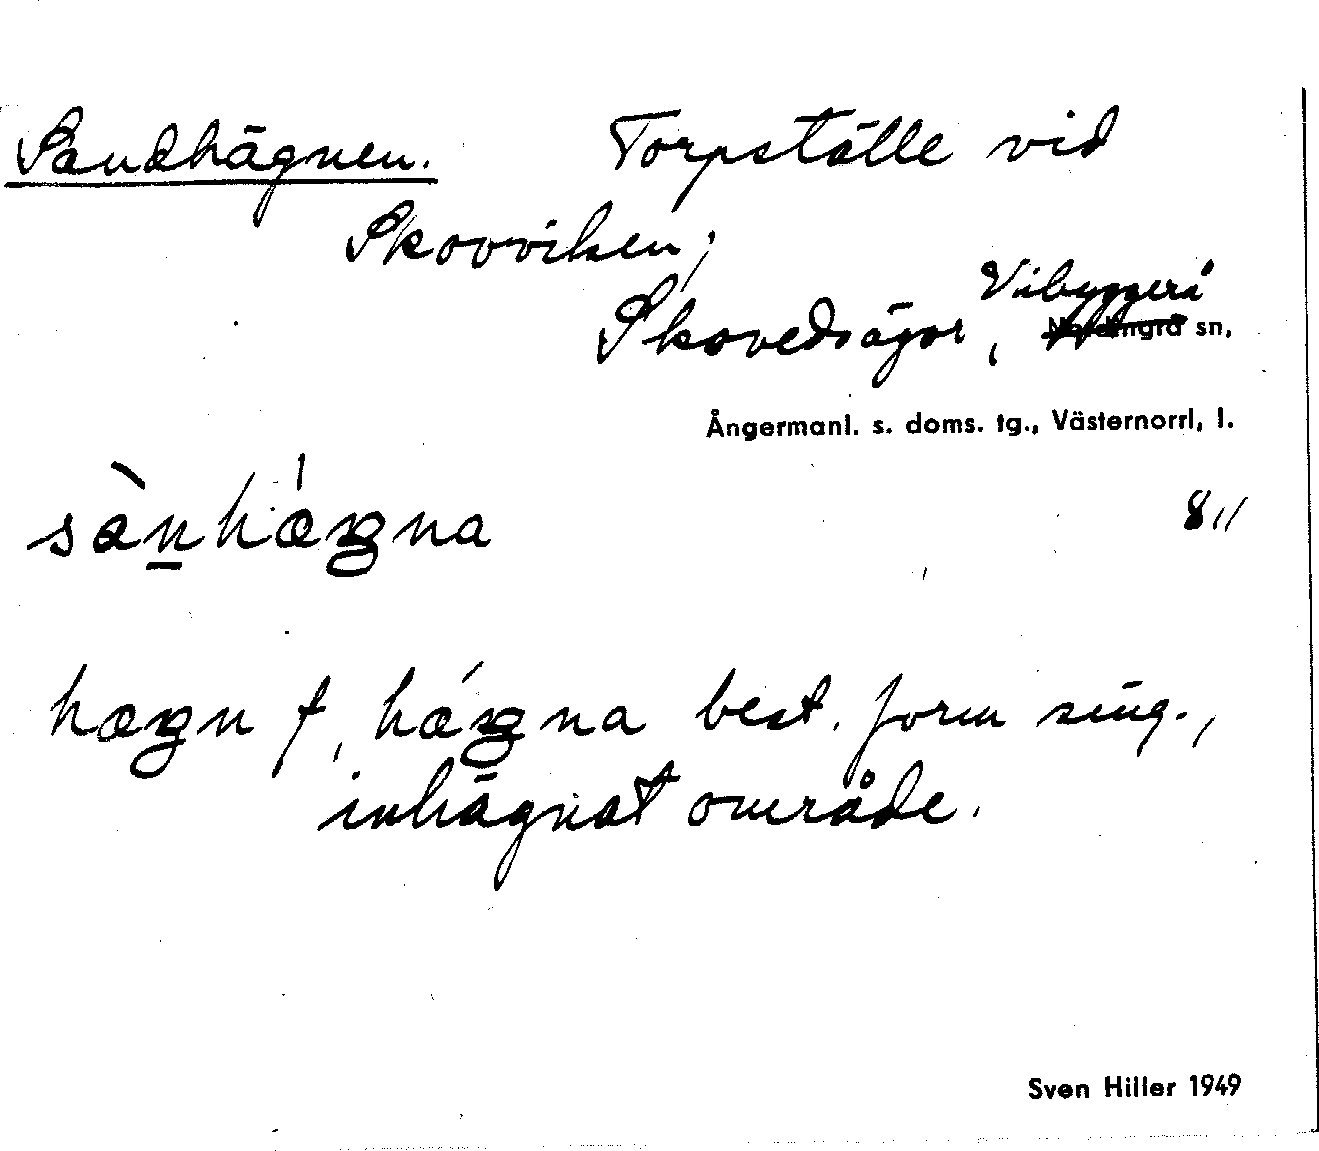 Sandhägnen. Torpställe vid
Skovviken,
Skovedsägor, Vibyggerå
Nordingrå sn,
Ångermanl. s. doms. tg., Västernorrl, l.
sànhǽgna
8
hægn f, hǽgna best. form sing.,
inhägnat område.
Sven Hiller 1949